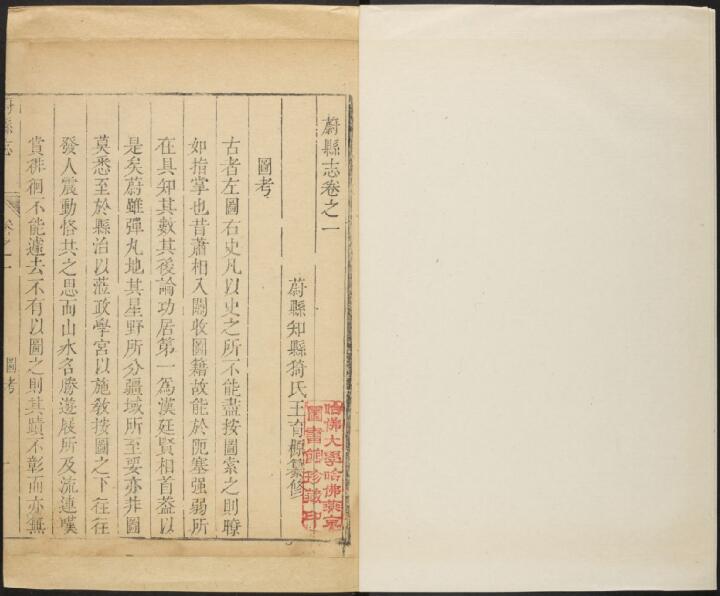 蔚縣志卷之一
蔚縣知縣猗氏王育榞纂修
圖考
古者左圖右史凡以史之所不能盡按圖索之則瞭
如指掌也昔蕭相入關收圖籍故能於阨塞强弱所
在具知其數其後論功居第一為漢廷賢相首葢以
是矣蔚雖彈丸地其星野所分疆域所至要亦非圖
莫悉至於縣治以蒞政學宮以施教按圖之下往往
發人震動恪共之思而山水名勝遊展所及流連嘆
賞徘徊不能遽去不有以圖之則其蹟不彰而亦無
蔚縣志
卷之一
圖考
哈佛大學哈佛燕京
圖書館珍藏印